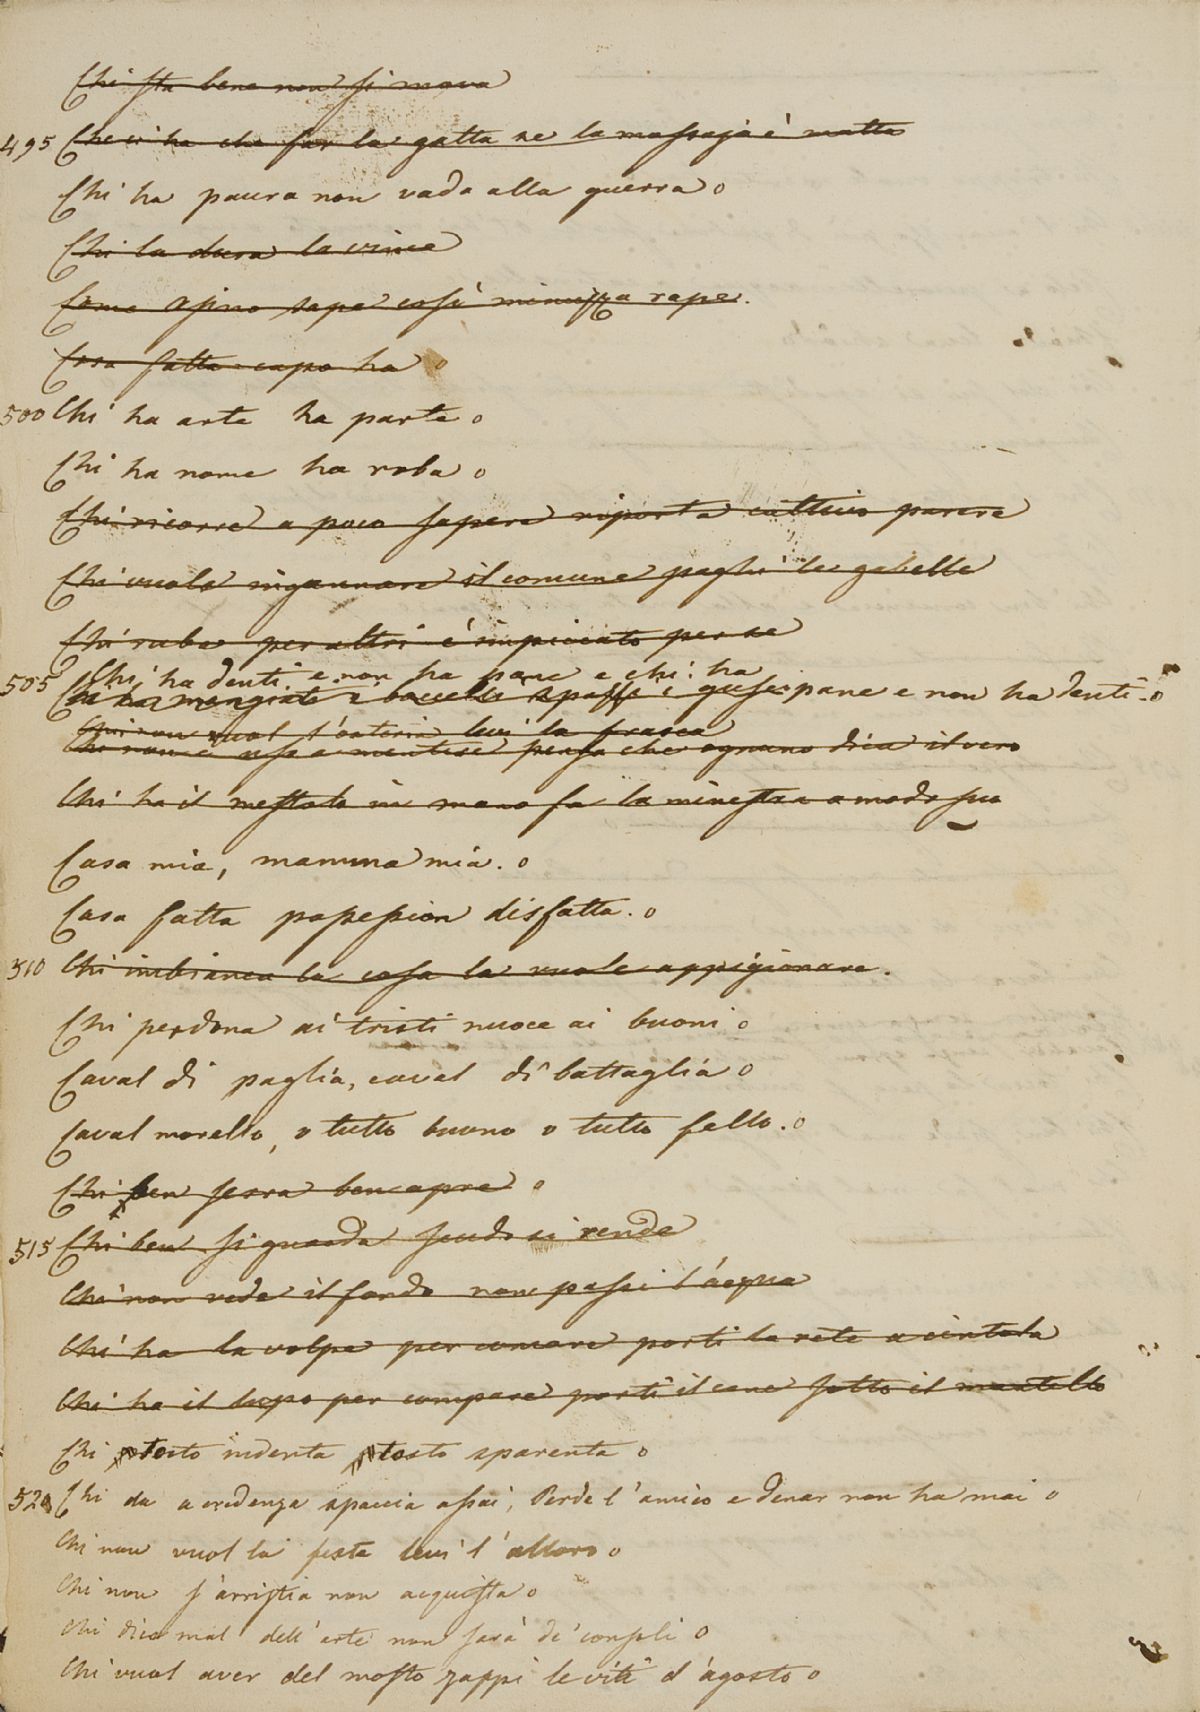 Chi sta bene non si mova
495 Che ci ha che far la gatta se la massaja è matta
Chi ha paura non vada alla guerra o
Chi la dura la vince
Come asino sape così minuzza rape.
Cosa fatta capo ha o
500 Chi ha arte ha parte o
Chi ha nome ha roba o
Chi ricorre a poco sapere riporta cattivo parere
Chi vuole ingannare il comune paghi le gabelle
Chi ruba per altri è impiccato per se
Chi ha denti e non ha pane e chi ha
505 Chi ha mangiato i baccelli spazzi i gusci pane e non ha denti. o
Chi non vuol l'osteria levi la frasca
Chi non è uso a mentire pensa che ognuno dica il vero
Chi ha il mestolo in mano fa la minestra a modo suo
Casa mia, mamma mia. o
Casa fatta possession disfatta. o
510 Chi imbianca la casa la vuole appigionare.
Chi perdona ai tristi nuoce ai buoni o
Caval di paglia, caval di battaglia o
Caval morello, o tutto buono o tutto fello. o
Chi ben serra ben apre o
515 Chi ben si guarda scudo si rende
Chi non vede il fondo non passi l'acqua
Chi ha la volpe per comare porti la rete a cintola
Chi ha il lupo per compare porti il cane sotto il mantello
Chi tosto indenta tosto sparenta o
520 Chi da a credenza spaccia assai, Perde l'amico e denar non ha mai o
Chi non vuol la festa levi l'alloro o
Chi non s'arristia non acquista o
Chi dice mal dell'arte non sarà de' consoli o
Chi vuol aver del mosto zappi le viti d'agosto o